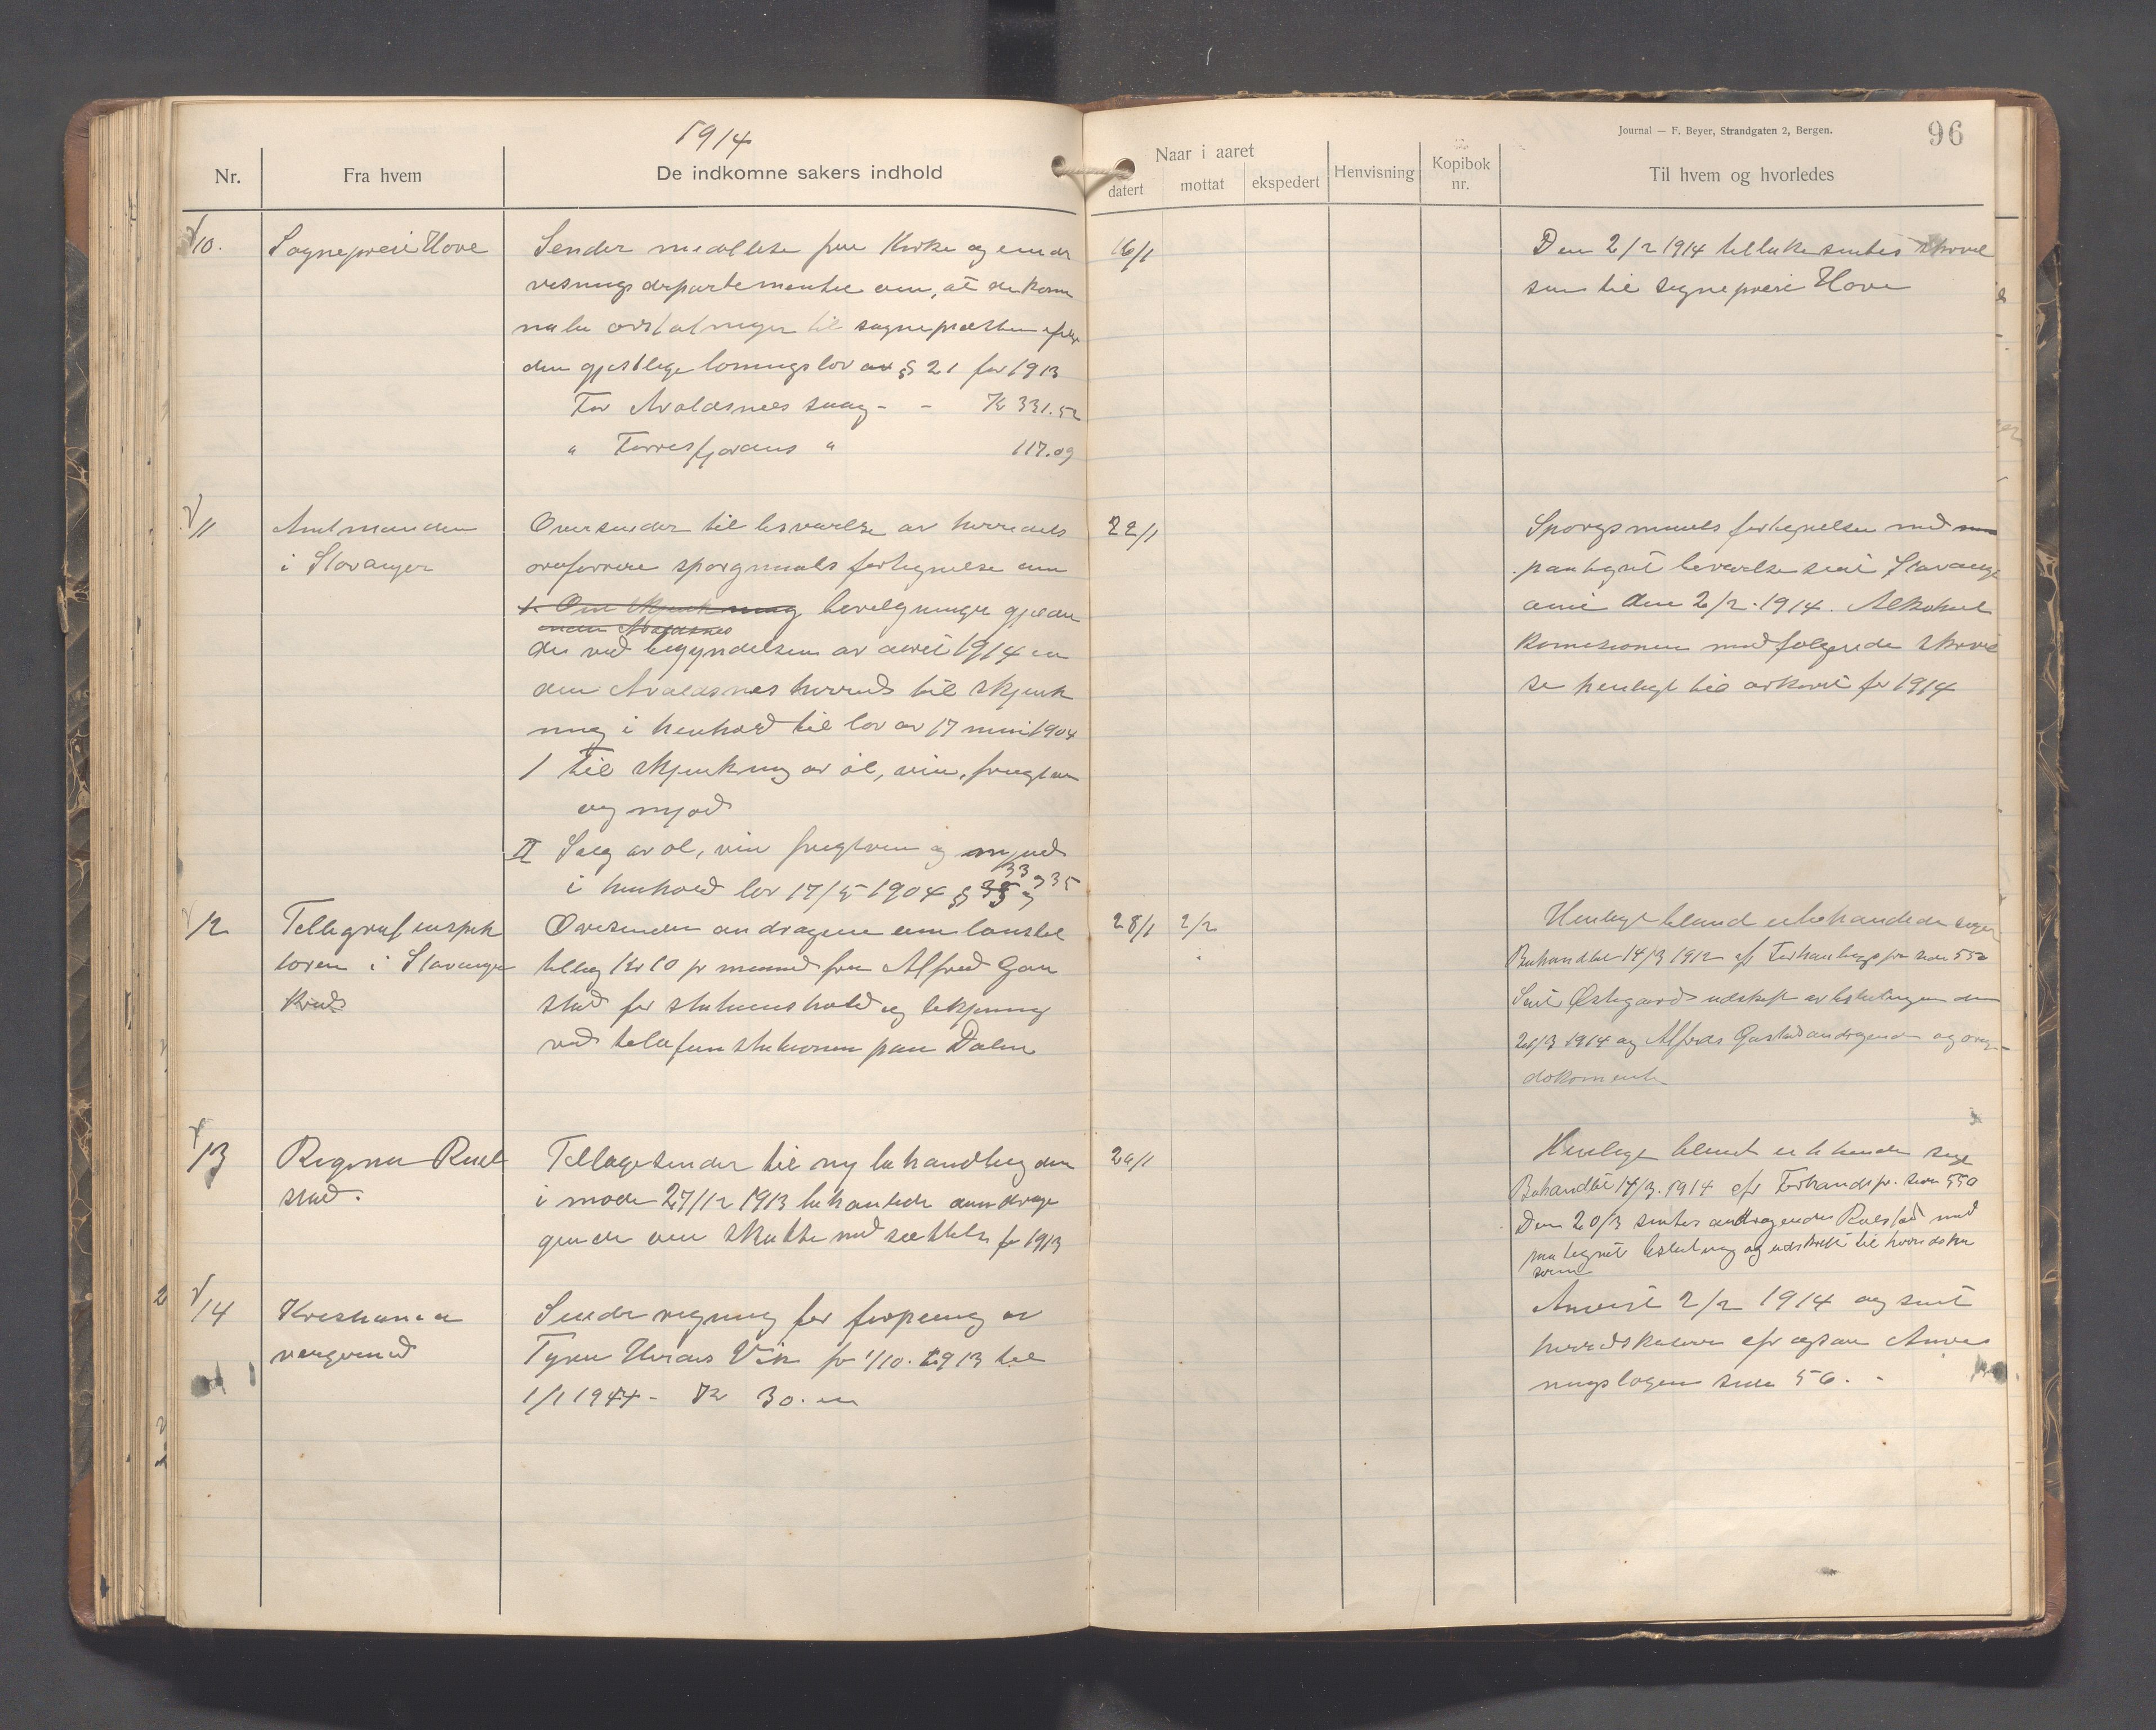 1914
Journal — F. Beyer, Strandgaten 2, Bergen.
96
Nr.
Fra hvem
De indkomne sakers indhold
Naar i aaret
datert
mottat
ekspedert
Henvisning
Kopibok nr.
Til hvem og hvorledes
10.
Sogneprest Hove
Sender meddelse fra Kirke og under
visningsdepartementet om, at de komu
nale til sogneprästen efter
den gjestlege lonningslov av § 21 for 1913
For Avaldsnes sogn - - Kr 331.52
" Torresfjordens " 117.09
16/1
Den 2/2 1914 tilbakesentes skrivel
sen til sogneprest Hove
11
Amtmanden
i Stavanger
Oversender til besvarelse av herreds
spørgmaals fortegnelse om
1. Om skjenkning bevelgninger gjelden
innen Avaldsnes
de ved begyndelsen av aaret 1914 in
den Avaldsnes herred til skjenk
ning i henhold til lov av 17 mai 1904
I til skjenkning av øl, vin, frugtvin
og mjød
II Salg av øl, vin frugtvin og mjød
i henhold lov 17/5 1904 § 33 og 35
22/1
Spørgsmaals fortegnelsen med
paategnet besvarelse sent Stavanger
amt den 2/2. 1914. Alkohol
komisionens medfølgende skrivel
se henlagt til arkivet for 1914
12
Tellegrafinspek
toren i Stavanger
Kreds
Oversender andragene om lønstil
tilleg Kr 10 pr maaned fra Alfred Gau
stad for stationshold og betjening
ved telefonstationen paa Dalen
28/1
2/2
Henlagt bland ubehandlede sager
Behandlet 14/3 1912 efr Forhandlingspr side 550
Sent Østegaard udskrift av beslutningen den
20/3 1914 og Alfred Gastad andragende og
dokomenter
13
Regina Ruel
stad.
Tilbagesender til ny behandling den
i møde 27/12 1913 behandlede andrage
gende om skattenedsættelse for 1913
29/1
Henlagt blandt ubehandlede sager
Behandlet 14/3. 1914 efr Forhandlspr. side 550
Den 20/3 sentes andragendet Ruelstad med
paategnet beslutning og udskrift til herredskas
seren
14
Kristiania
vergeraad
Sender regning for forpleining av
Vik fr 1/10. 1913 til
1/1 1914 - Kr 30.00
Anvist 2/2 1914 og sent
herredskasseren efr Anvis
ningsbogen side 56.